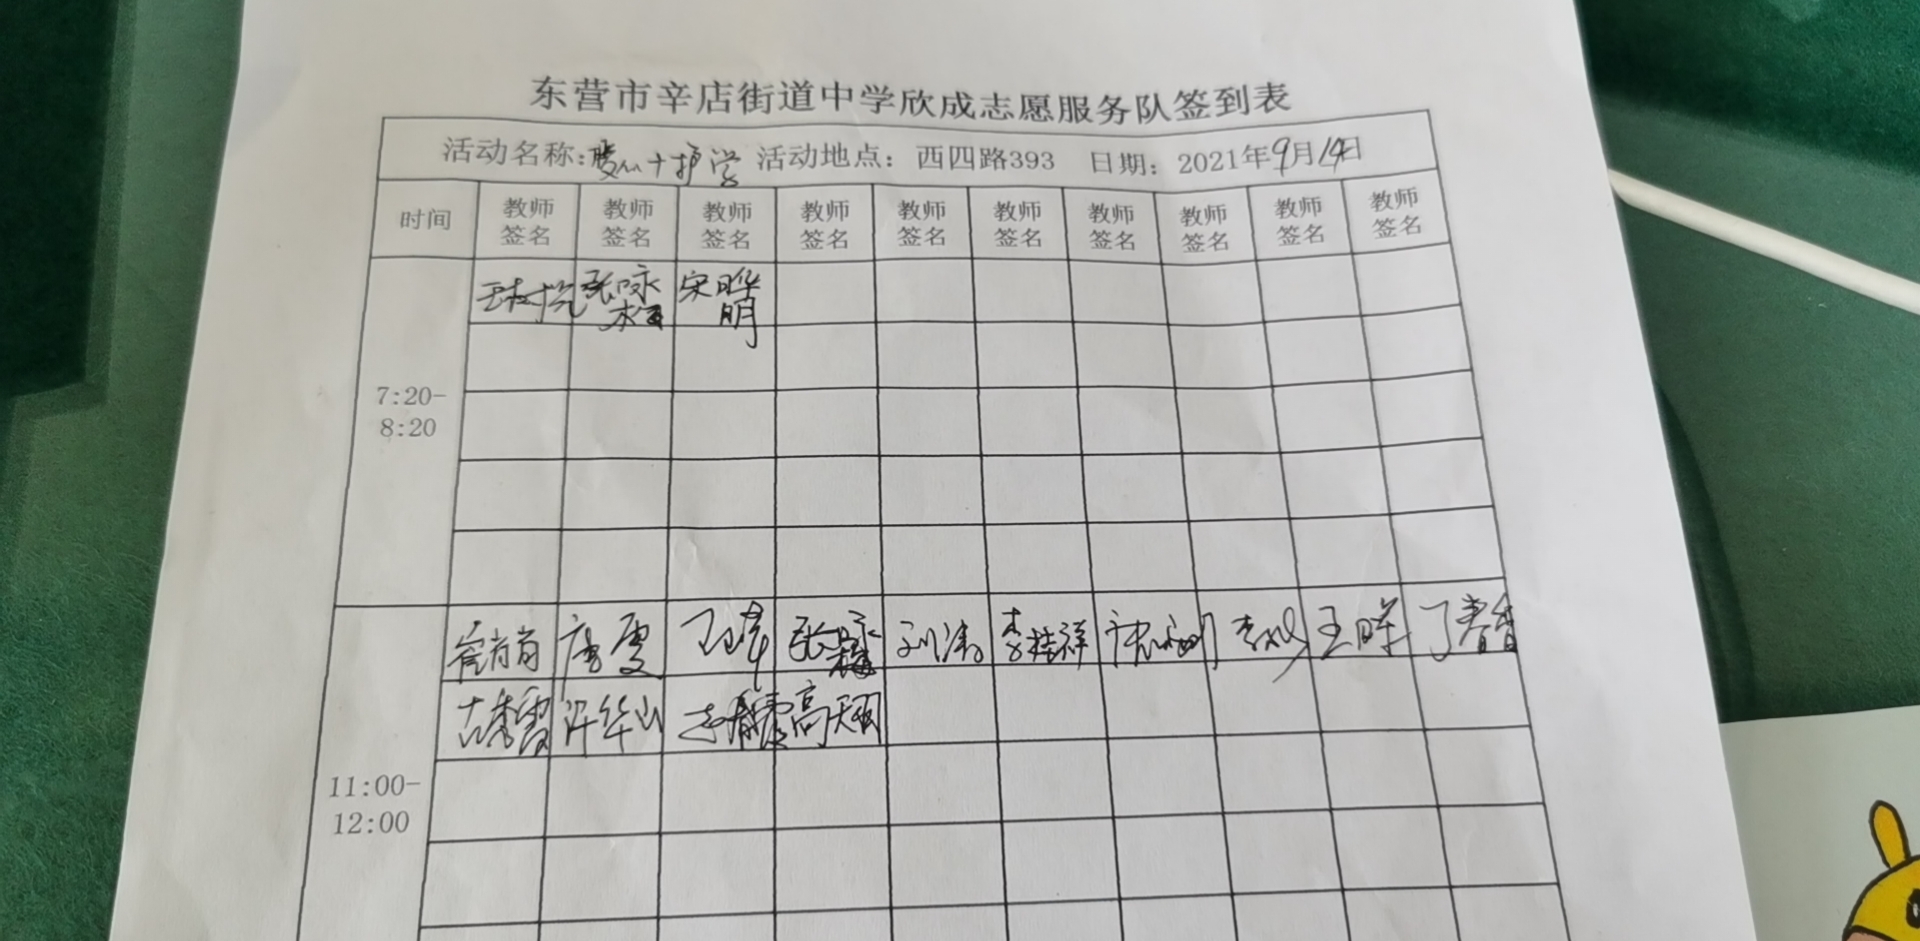 东营市辛店街道中学欣成志愿服务队签到表
活动名称:爱心护学 活动地点：西四路393 日期：2021年9月14日
时间 教师签名 教师签名 教师签名 教师签名 教师签名 教师签名 教师签名 教师签名 教师签名 教师签名
张咏梅 宋晔明
7:20-
8:20
崔肖肖 唐雯 张咏梅 刘涛 李桂祥 王晖 丁春香
古秀霞 许华山 高天翔
11:00-
12:00